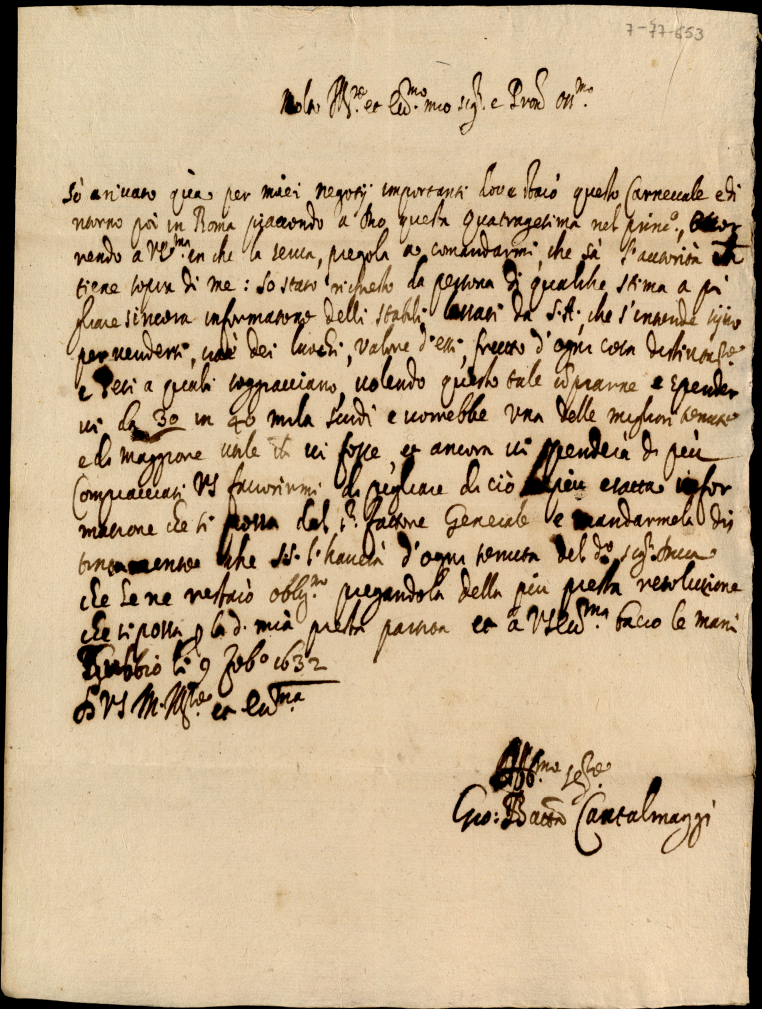 7-77-653
Molto Ill.re et Ecc.mo mio sig.r e Pron Oss.mo
Sò arivato qua per miei negotij importanti dove starò questo Carnevale e di
ritorno poi in Roma piacendo a Dio questa quatragesima nel princ.o, Occor
rendo a VS.ma in che la serva, pregola a comandarmi, che sà l'autorità ch
tiene sopra di me: So stato richiesto da persona di qualche stima a pi
gliare sincera informatione delli stabili lassati da S.A. che s'intende
per vendersi, cioè dei luochi, valore d'essi, frutto d'ogni cosa
e Pesi a quali soggiacciano, volendo questo tale e spender
vi da 30 in 40 mila scudi e vorrebbe una delle migliori tenute
e di maggiore utile ch vi fosse, et ancora vi spenderà di più
Compiacciasi VS favorirmi di pigliare di ciò più esatta infor
matione che si possa dal s.r fattore Generale e mandarmela dis
tintamente che SS. l'haverà d'ogni tenuta del d.o sig.r Duca
che le ne restarò oblig.mo pregandola della più presta resolutione
che si possa la d. mia presta partita et à VS Ecc.ma bacio le mani
Gubbio li 9 Feb.o 1632
D VS M. Ill.re et Ecc.ma
Aff.mo se.re
Gio: Batta Cantalmaggi